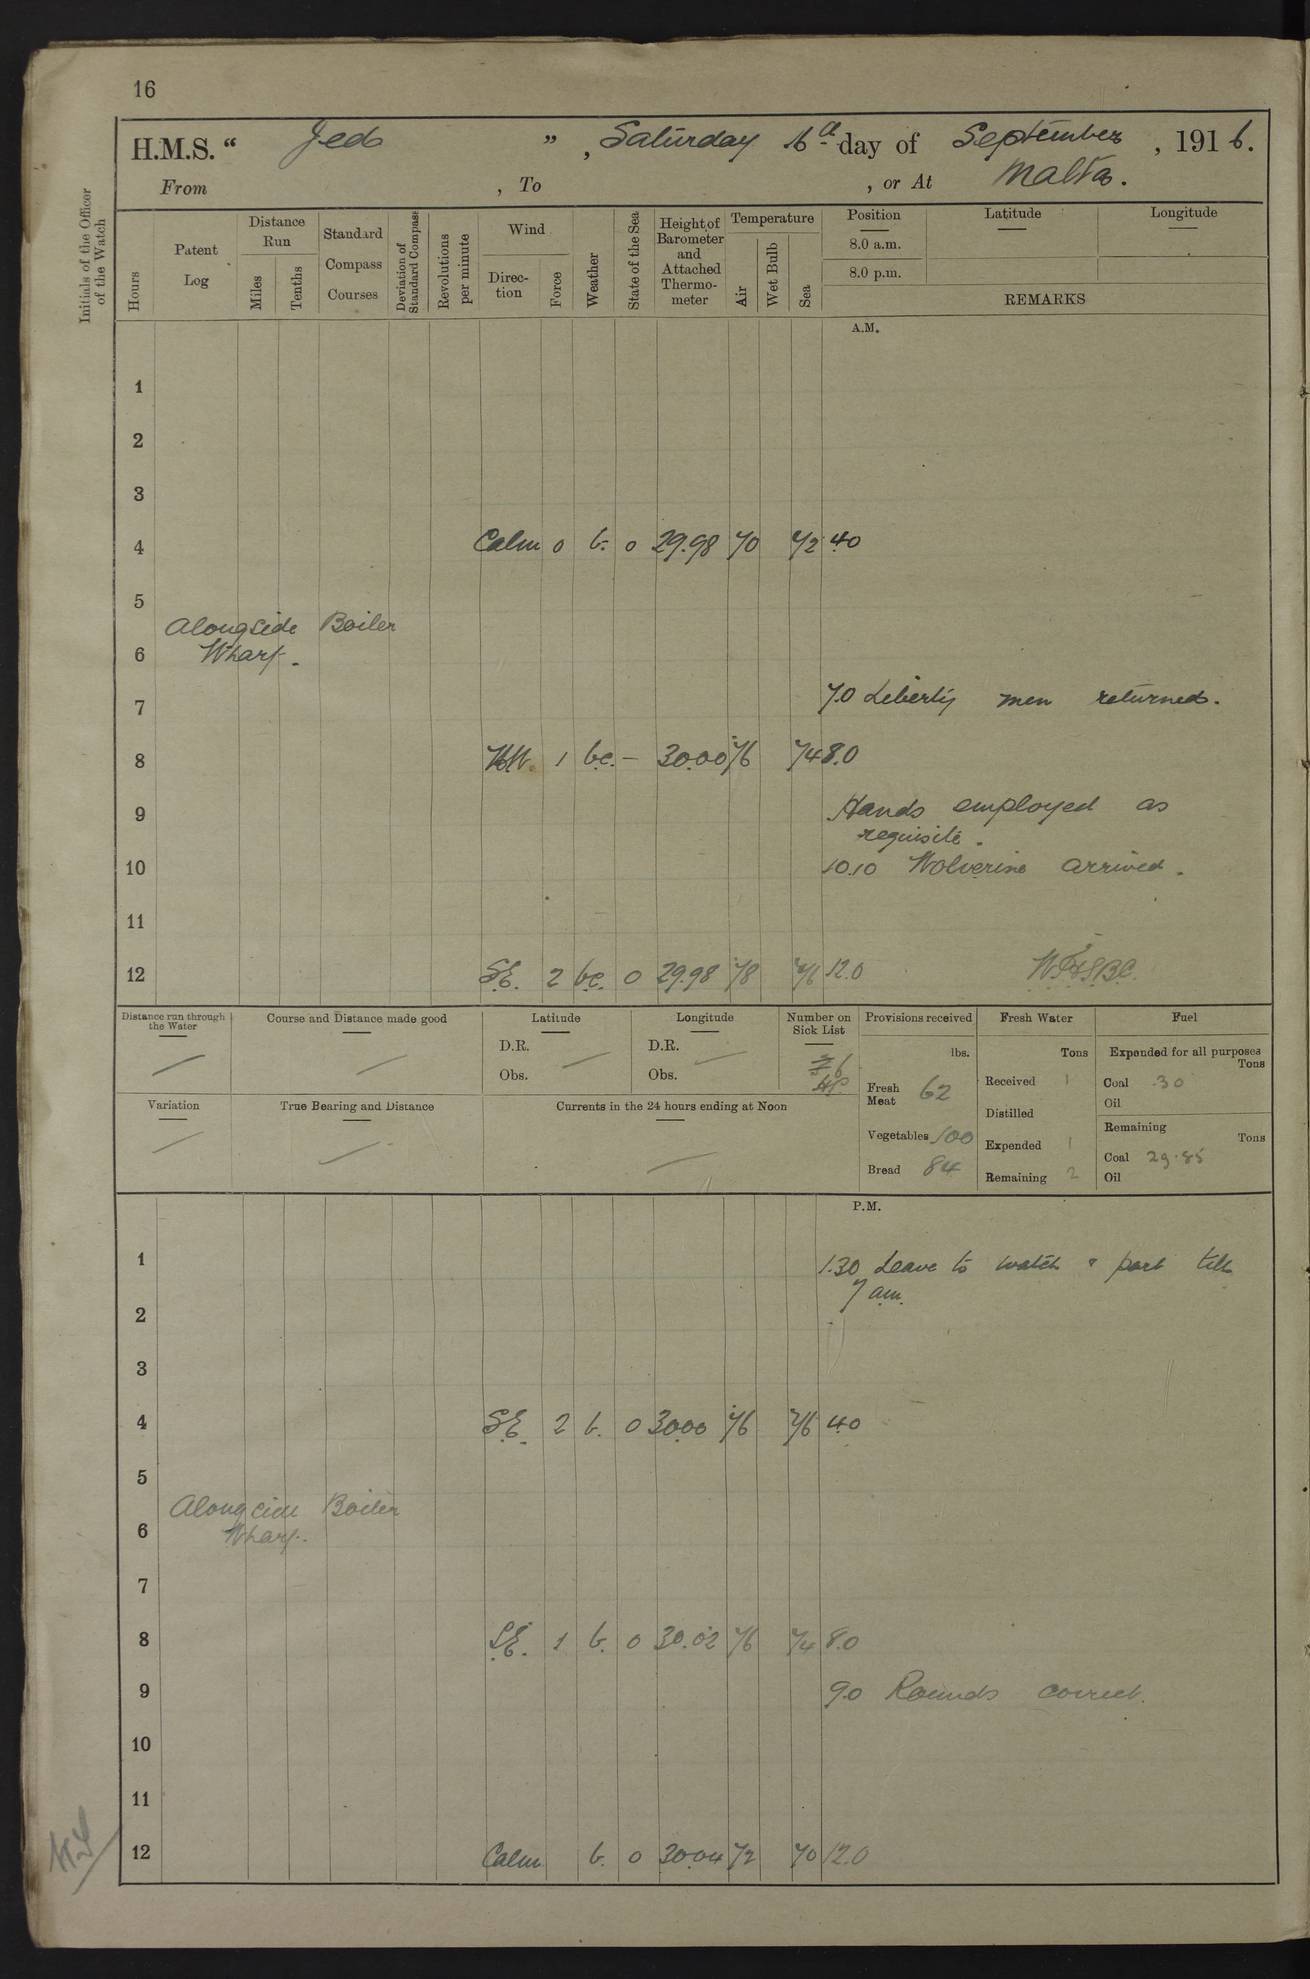 16
H.M.S. “ Jed ” , Saturday 16th day of September , 1916.
From , To , or At Malta.
Initials of the Officer of the Watch
Hours
Patent Log
Distance Run
Miles
Tenths
Standard Compass Courses
Deviation of Standard Compass
Revolutions per minute
Wind
Direction
Force
Weather
State of the Sea
Height of Barometer and Attached Thermometer
Temperature
Air
Wet Bulb
Sea
Position Latitude Longitude
8.0 a.m.
8.0 p.m.
REMARKS
A.M.
1
2
3
4 Calm 0 b. 0 29.98 70 72 4.0
5
Alongside Boiler
6 Wharf.
7 7.0 Liberty men returned.
8 1 b.c. – 30.00 76 74 8.0
9 Hands employed as
requisite.
10 10.10 Wolverine arrived.
11
12 S.E. 2 b.c. 0 29.98 78 76 12.0
Distance run through the Water
Course and Distance made good
Latitude
D.R.
Obs.
Longitude
D.R.
Obs.
Number on Sick List
6
Provisions received
lbs.
Fresh Meat 62
Vegetables 100
Bread 84
Fresh Water
Tons
Received 1
Distilled
Expended 1
Remaining 2
Fuel
Expended for all purposes
Tons
Coal .30
Oil
Remaining
Tons
Coal 29.85
Oil
Variation
True Bearing and Distance
Currents in the 24 hours ending at Noon
P.M.
1 1.30 Leave to watch & part till
7 am.
2
3
4 S.E. 2 b. 0 30.00 76 76 4.0
5
Alongside Boiler
6 Wharf.
7
8 S.E. 1 b. 0 30.02 76 74 8.0
9 9.0 Rounds correct.
10
11
12 Calm b. 0 30.04 72 70 12.0